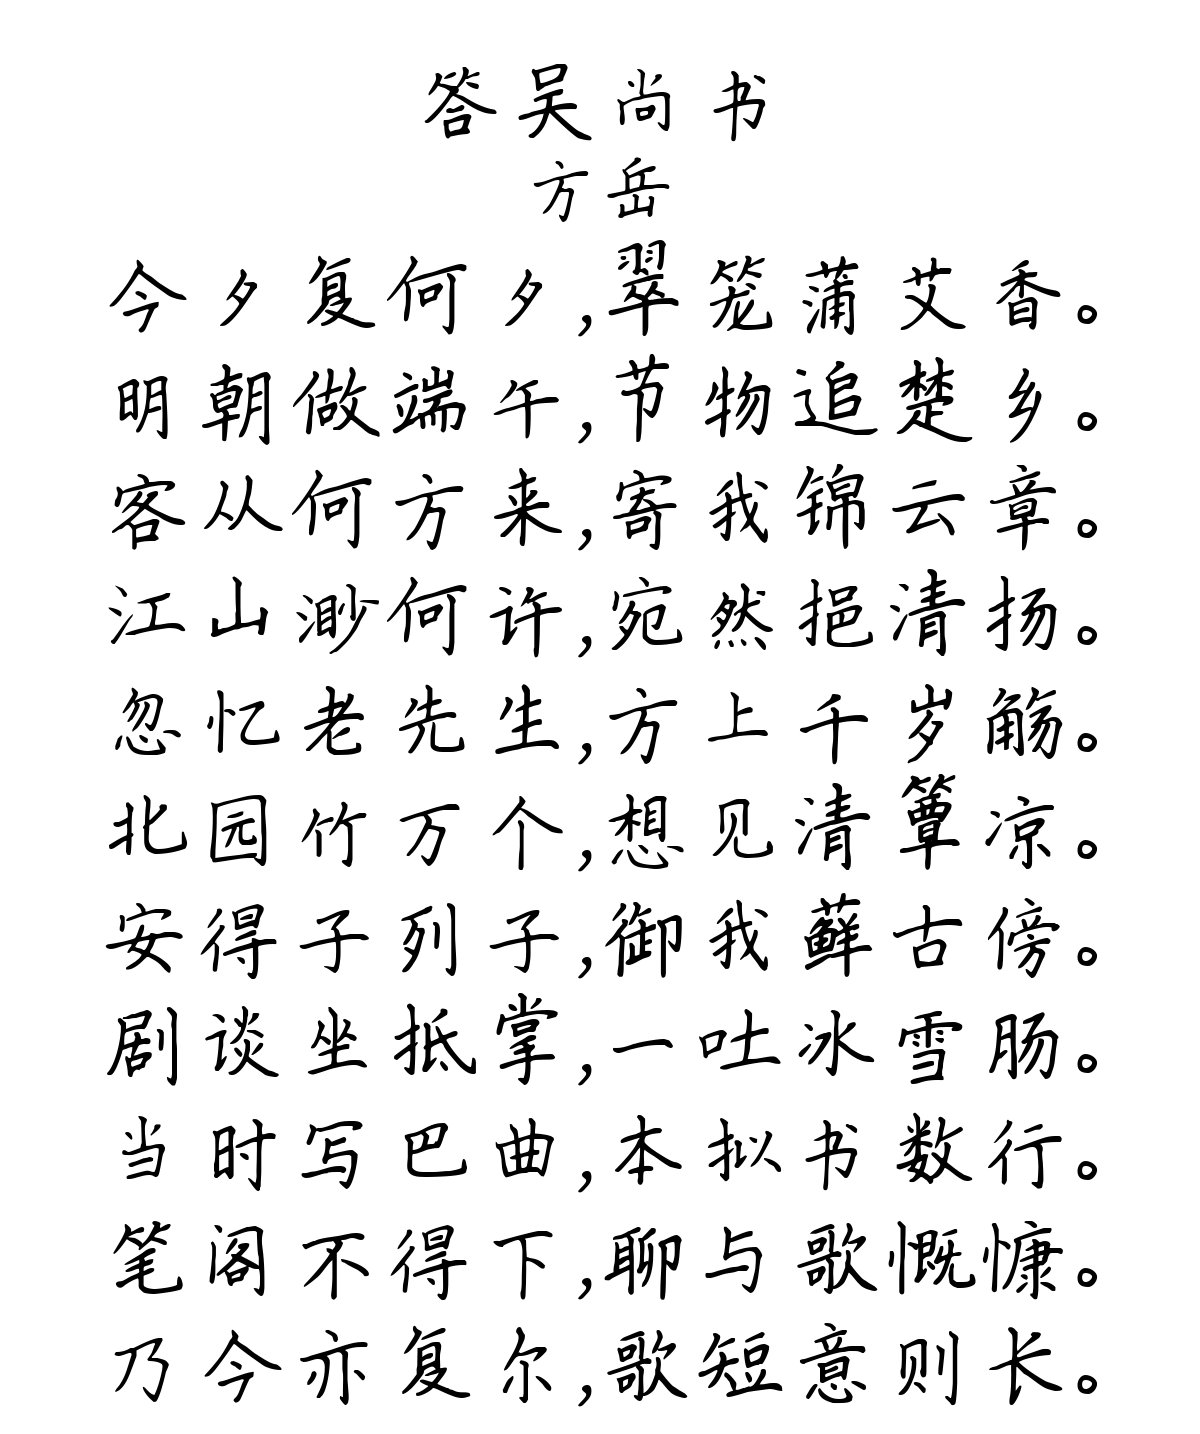 答吴尚书
方岳
今夕复何夕,翠笼蒲艾香。
明朝做端午,节物追楚乡。
客从何方来,寄我锦云章。
江山渺何许,宛然挹清扬。
忽忆老先生,方上千岁觞。
北园竹万个,想见清簟凉。
安得子列子,御我藓古傍。
剧谈坐抵掌,一吐冰雪肠。
当时写巴曲,本拟书数行。
笔阁不得下,聊与歌慨慷。
乃今亦复尔,歌短意则长。